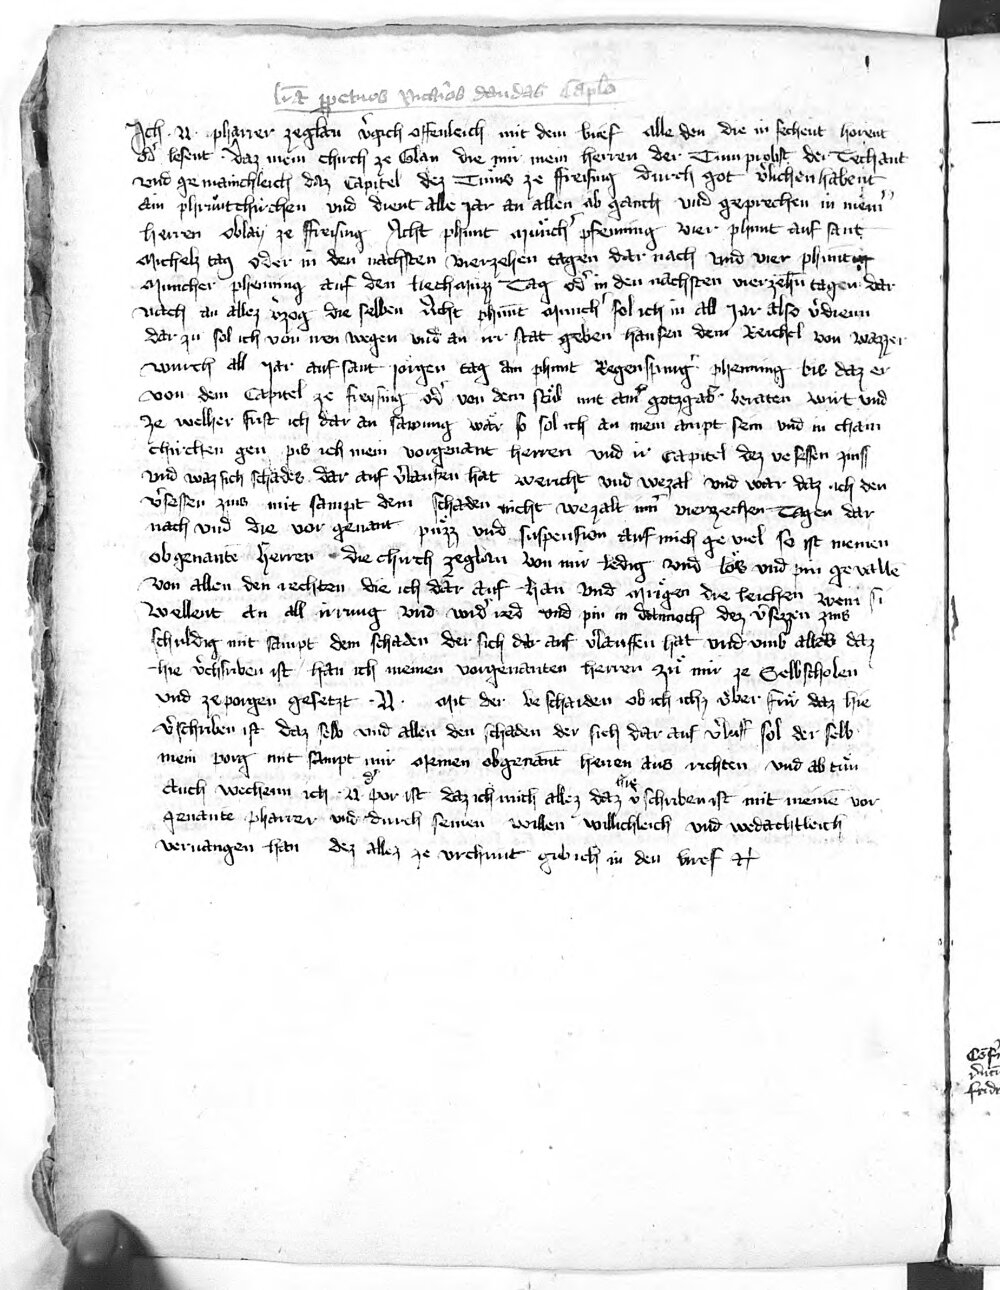 Ich · N · pharrer ze glan v̓gich offenleich mit dem brief alle den die in sechent horent
od̓ lesent · daz mein chirch ze Glan die mir mein herren der Tumprobst der Techant
und gemainchleich daz Capitel dez Tůms ze ffreising durch got v̓lichen habent
am phrůntchirchen und dient alle Jar an allen abganch und geprechen in meīr
herren oblay ze ffreising Acht phunt Můnich̓ pfenning vier phunt auf sant
Michels tag oder in den nachsten vierzehen tagen dar nach und vier phunt
Můncher phenning auf den liechtmizz Tag od̓ in den nåchsten vierzehn̄ tagen dar
nach an allez v̓zog die selben Åcht phunt Munich̓ sol ich in all Jar also v̓dienn
dar zu sol ich von iren wegen und an irr stat geben hansen dem Reichel von wazzer
wurch all Jar auf sant Jorgen tag ain phunt Regenspurg̓ phenning bis daz er
von dem Capitel ze freysing od̓ von dem mit aīr gotzgab beraten wirt und
ze welher frist ich dar an sawmig wår so sol ich an mein ampt sein und in chain
chirchen gen pis ich mein vorgenant herren und ir Capitel dez vesessen zins
und waz sich schadens dar auf v̓lauffen hat wericht und wezal und war daz ich den
v̓sessen zins mit sampt dem schaden nicht wezalt inn̄ vierzechen Tagen dar
nach und die vor genant půzz und suspension auf mich geviel so ist meinen
obgenante herren die chirch ze glan von mir ledig und lös und pin gevalle
von allen den rechten die ich dar auf han und mügen die leichen wem si
wellent an all irrung und wid̓red und pin in dannoch dez v̓sezzen zins
schuldig mit sampt dem schaden der sich dar auf v̓lauffen hat und umb allez daz
hie v̓chriben ist han ich meinen vorgenanten herren zů mir ze Selbscholen
und ze porgen gesetzt · N · Mit der beschaiden ob ich ichz v̓ber fůr daz hie
v̓schriben ist daz selb und allen den schaden der sich dar auf v̓luff sol der selb
mein porg mit sampt mir meinen obgenant herren aus richten und ab tůn
Auch wechenn ich · N der por ist daz ich mich allez daz hie v̓schriben ist mit meinē vor
genante pharrer und durch seinen willen willichleich und wedåchtleich
vervangen han dez allez ze urchunt gib ich in den brief